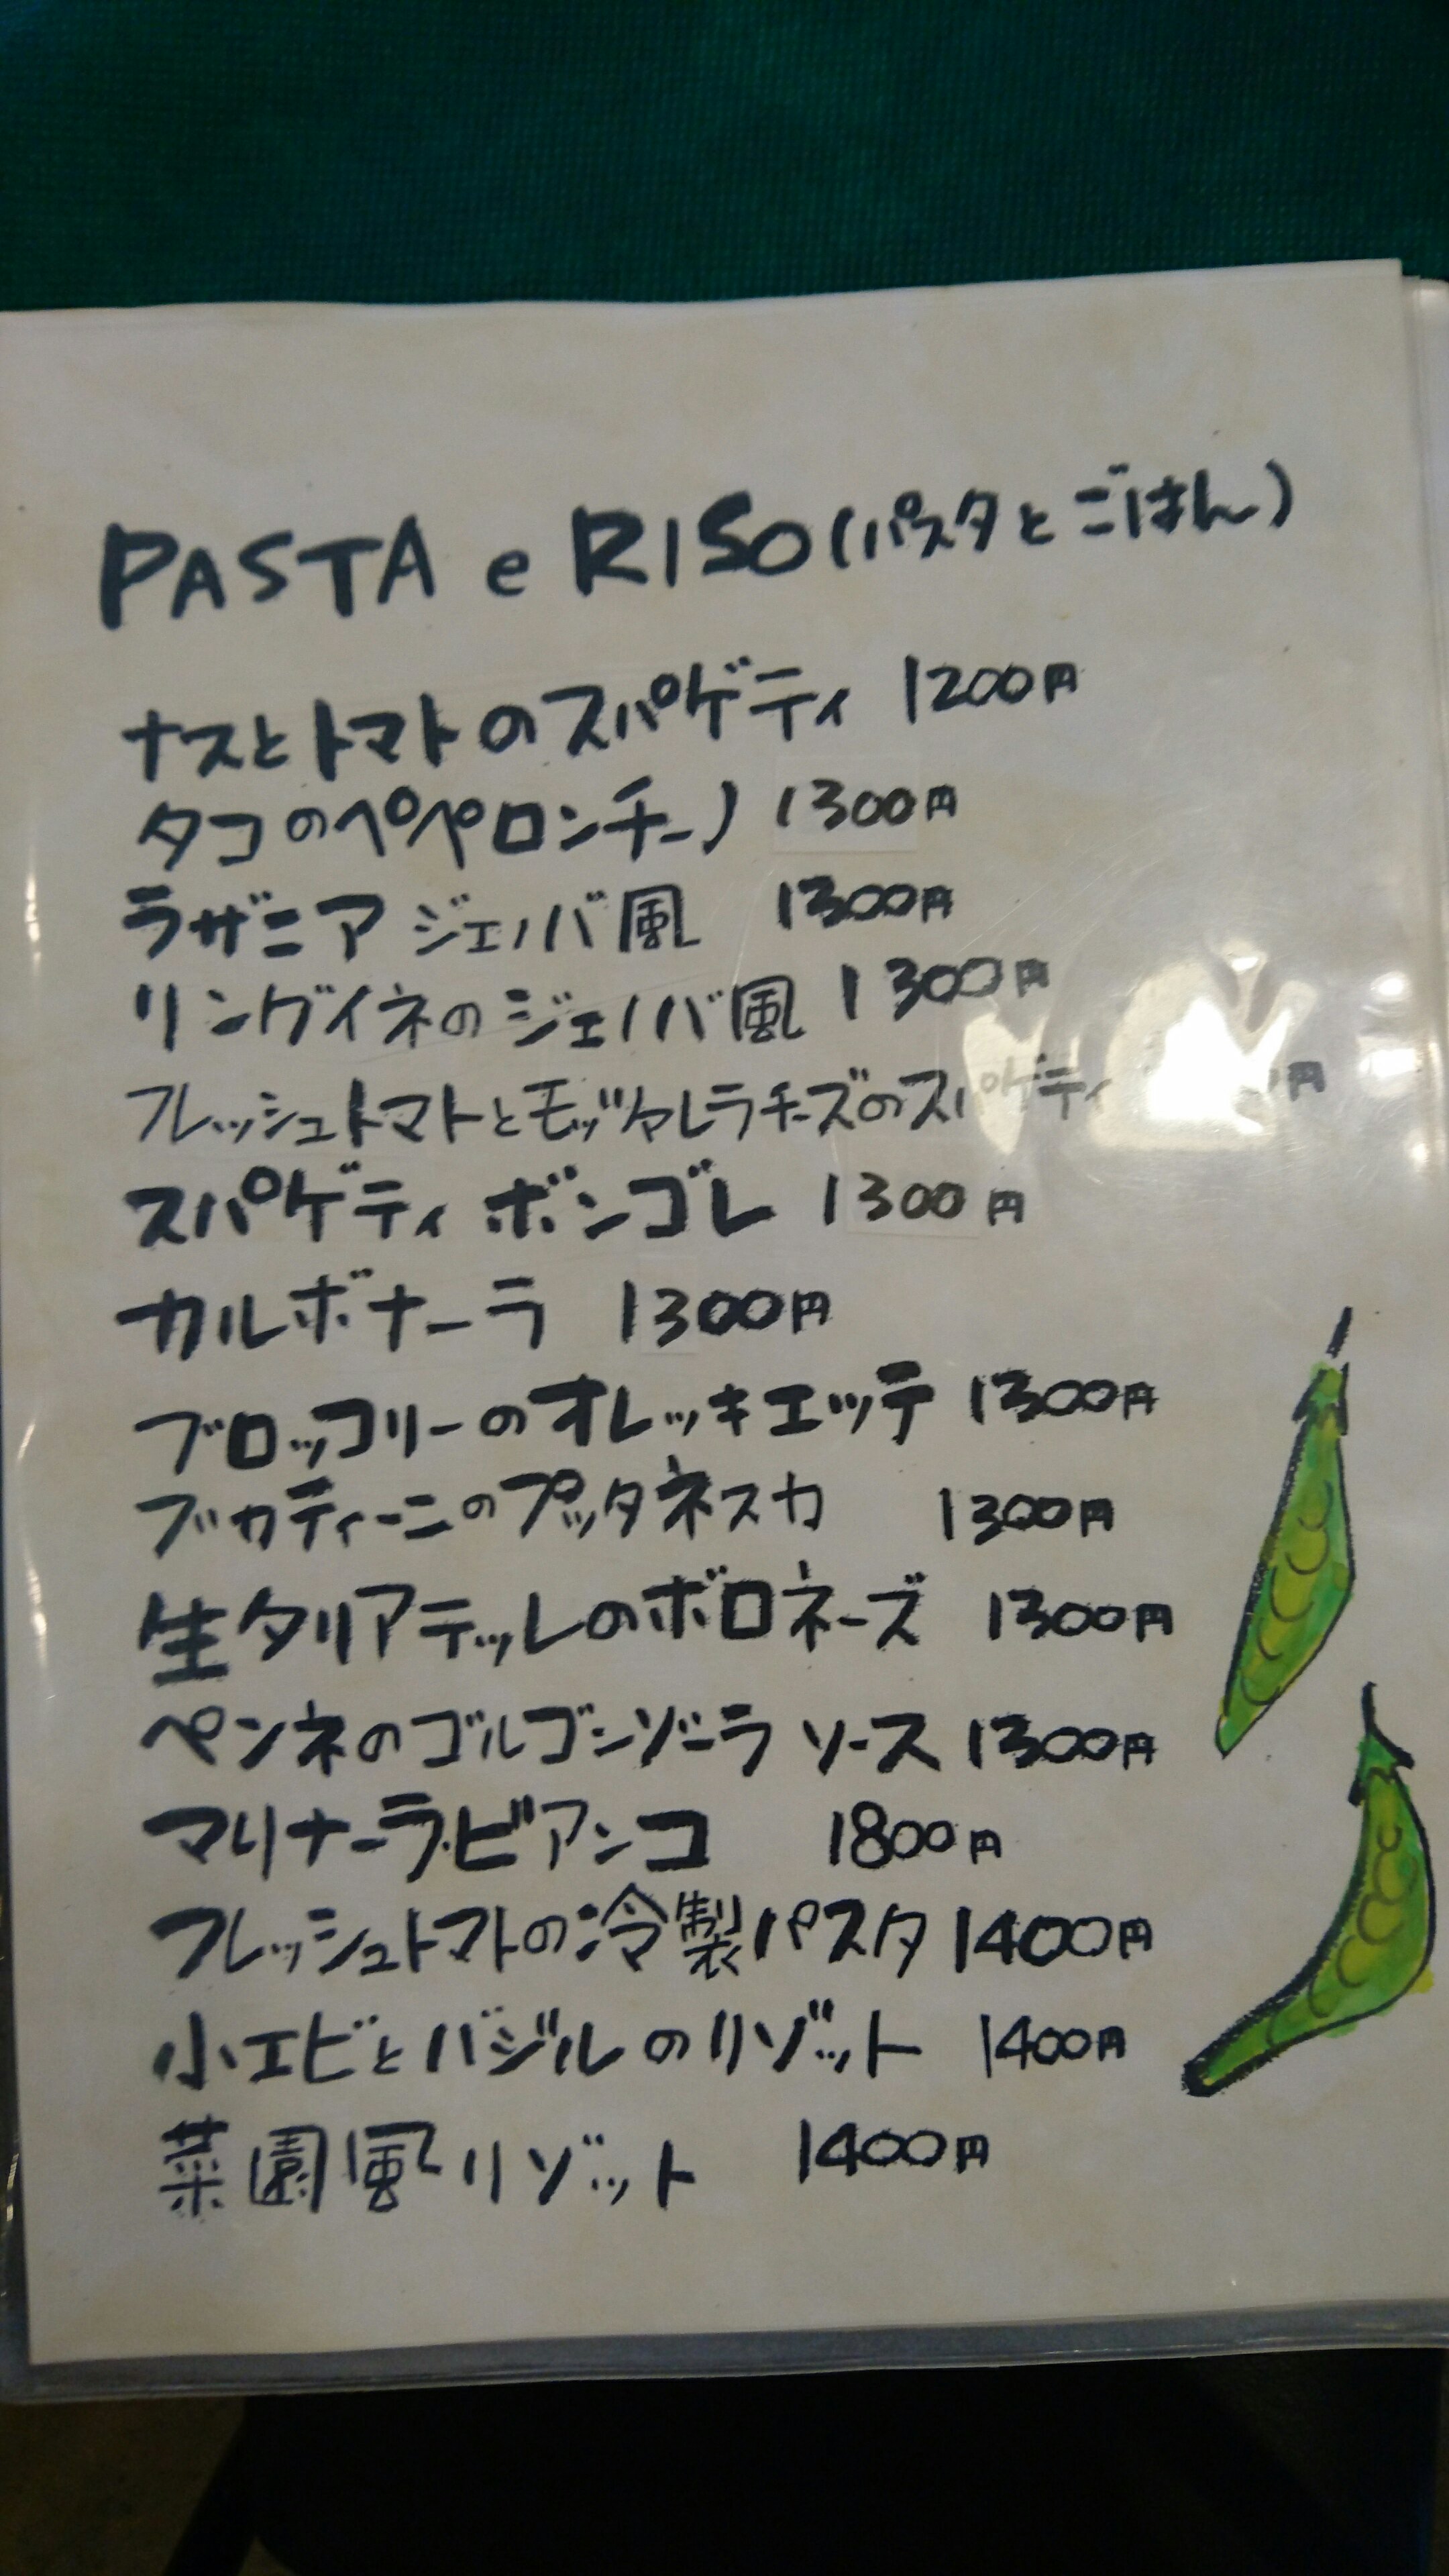 PASTA e RISO (パスタとごはん)
ナスとトマトのスパゲティ 1200円
タコのペペロンチーノ 1300円
ラザニア ジェノバ風 1300円
リングイネのジェノバ風 1300円
フレッシュトマトとモッツァレラチーズのスパゲティ 円
スパゲティ ボンゴレ 1300円
カルボナーラ 1300円
ブロッコリーのオレッキエッテ 1300円
ブカティーニのプッタネスカ 1300円
生タリアテッレのボロネーズ 1300円
ペンネのゴルゴンゾーラ ソース 1300円
マリナーラ・ビアンコ 1800円
フレッシュトマトの冷製パスタ 1400円
小エビとバジルのリゾット 1400円
菜園風リゾット 1400円